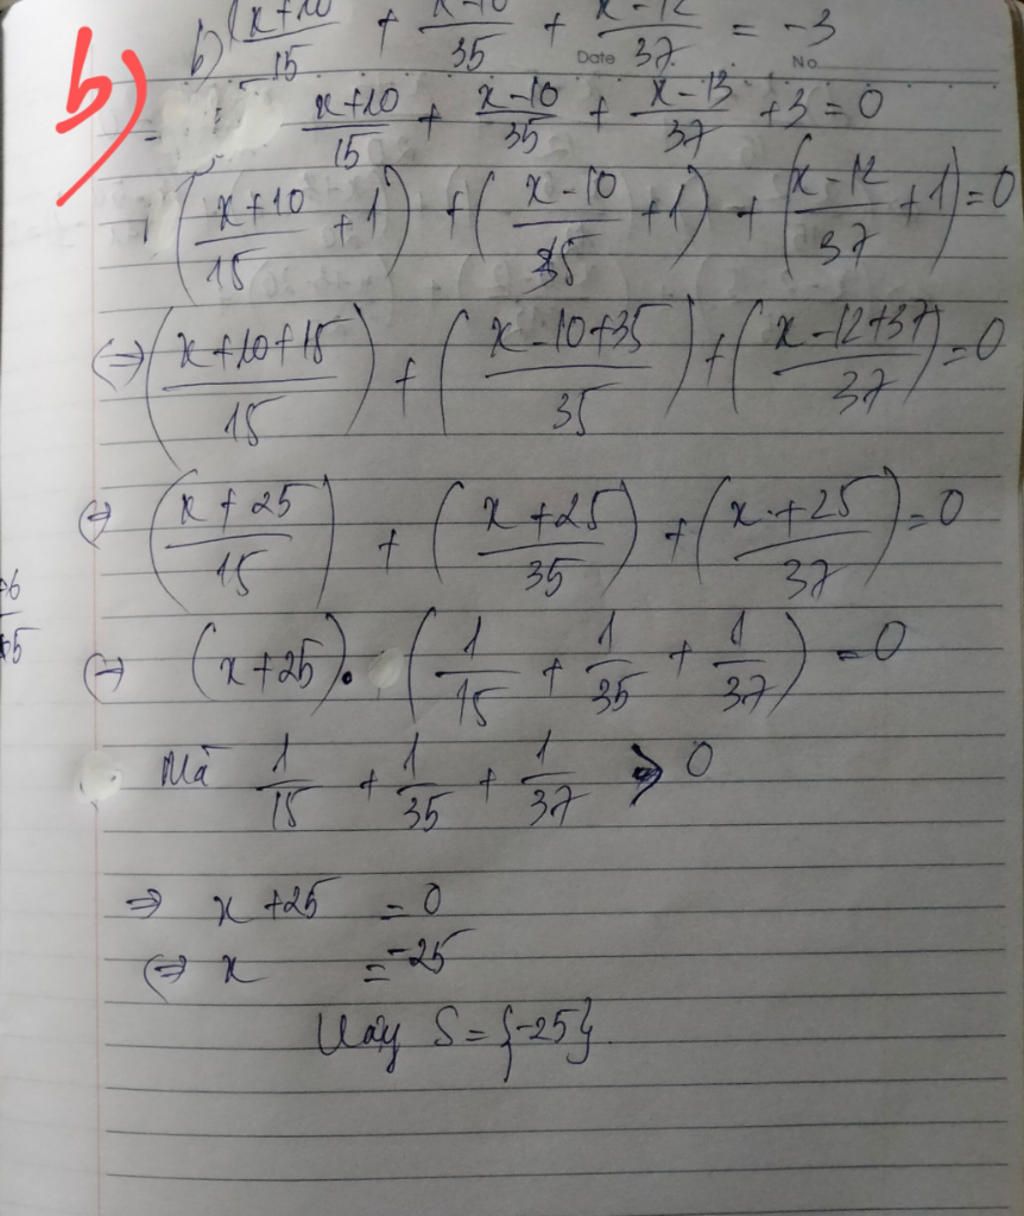 b)
b) (x+10)/15 + (x-10)/35 + (x-12)/37 = -3
Date No
= (x+10)/15 + (x-10)/35 + (x-13)/37 + 3 = 0
((x+10)/15 + 1) + ((x-10)/35 + 1) + ((x-12)/37 + 1) = 0
(=> ((x+10+15)/15) + ((x-10+35)/35) + ((x-12+37)/37) = 0
(=> ((x+25)/15) + ((x+25)/35) + ((x+25)/37) = 0
+6
+5
(=> (x+25) . (1/15 + 1/35 + 1/37) = 0
Mà 1/15 + 1/35 + 1/37 > 0
=> x+25 = 0
(=> x = -25
Vậy S = {-25}.